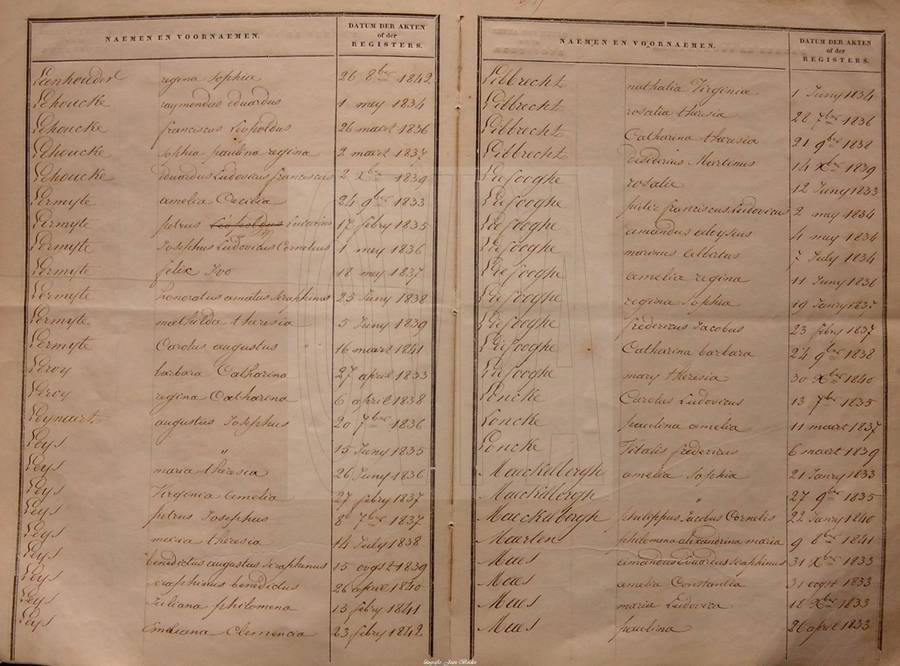 NAEMEN EN VOORNAEMEN. DATUM DER AKTEN of der REGISTERS.
Leenhouder regina Sophia 26 8bre 1842
Lehoucke raymondus eduardus 1 mey 1834
Lehoucke franciscus Leopoldus 26 maert 1836
Lehoucke Sophia paulina regina 2 maert 1837
Lehoucke eduardus Ludovicus franciscus 2 Xbre 1839
Lermyte amelia Cecilia 24 9bre 1833
Lermyte petrus Leopoldus Ludovicus 17 febry 1835
Lermyte Josephus Ludovicus Cornelius 1 mey 1836
Lermyte felix Ivo 18 mey 1837
Lermyte honoratus amatus Seraphinus 25 Juny 1838
Lermyte mathilda theresia 5 Juny 1839
Lermyte Carolus augustus 16 maert 1841
Leroy barbara Catharina 27 april 1833
Leroy regina Catharina 6 april 1838
Leynaert augustus Josephus 20 7bre 1836
Leys " 15 Juny 1835
Leys maria theresia 26 Juny 1836
Leys Virginia amelia 27 febry 1837
Leys petrus Josephus 8 7bre 1837
Leys maria theresia 14 July 1838
Leys benedictus augustus Seraphinus 15 oogst 1839
Leys seraphinus benedictus 26 april 1840
Leys Juliana philomena 13 febry 1841
Leys Emiliana Clemencia 23 febry 1842
NAEMEN EN VOORNAEMEN. DATUM DER AKTEN of der REGISTERS.
Libbrecht nathalia Virginia 1 Juny 1834
Libbrecht rosalia theresia 28 7bre 1836
Libbrecht Catharina theresia 21 9bre 1838
Libbrecht desiderius Martinus 14 Xbre 1839
Liefooghe rosalie 12 Juny 1833
Liefooghe franciscus Ludovicus 2 mey 1834
Liefooghe amandus aloysius 4 mey 1834
Liefooghe Albertus 7 July 1834
Liefooghe amelia regina 11 Juny 1836
Liefooghe regina Sophia 19 Janry 1837
Liefooghe fredericus Jacobus 23 febry 1837
Liefooghe Catharina barbara 24 9bre 1838
Liefooghe mary theresia 30 Xbre 1840
Loncke Carolus Ludovicus 13 7bre 1835
Loncke paulina amelia 11 maert 1837
Loncke Vitalis fredericus 6 maert 1839
Maeckelbergh amelia Sophia 21 Janry 1833
Maeckelbergh " 27 9bre 1835
Maeckelbergh philippus Jacobus Cornelis 22 Janry 1840
Maerten philomena alexandrina maria 9 8bre 1841
Maes amandus Eduardus Seraphinus 31 Xbre 1833
Maes amelia Constantia 31 oogst 1833
Maes maria Ludovica 18 Xbre 1833
Maes paulina 26 april 1833